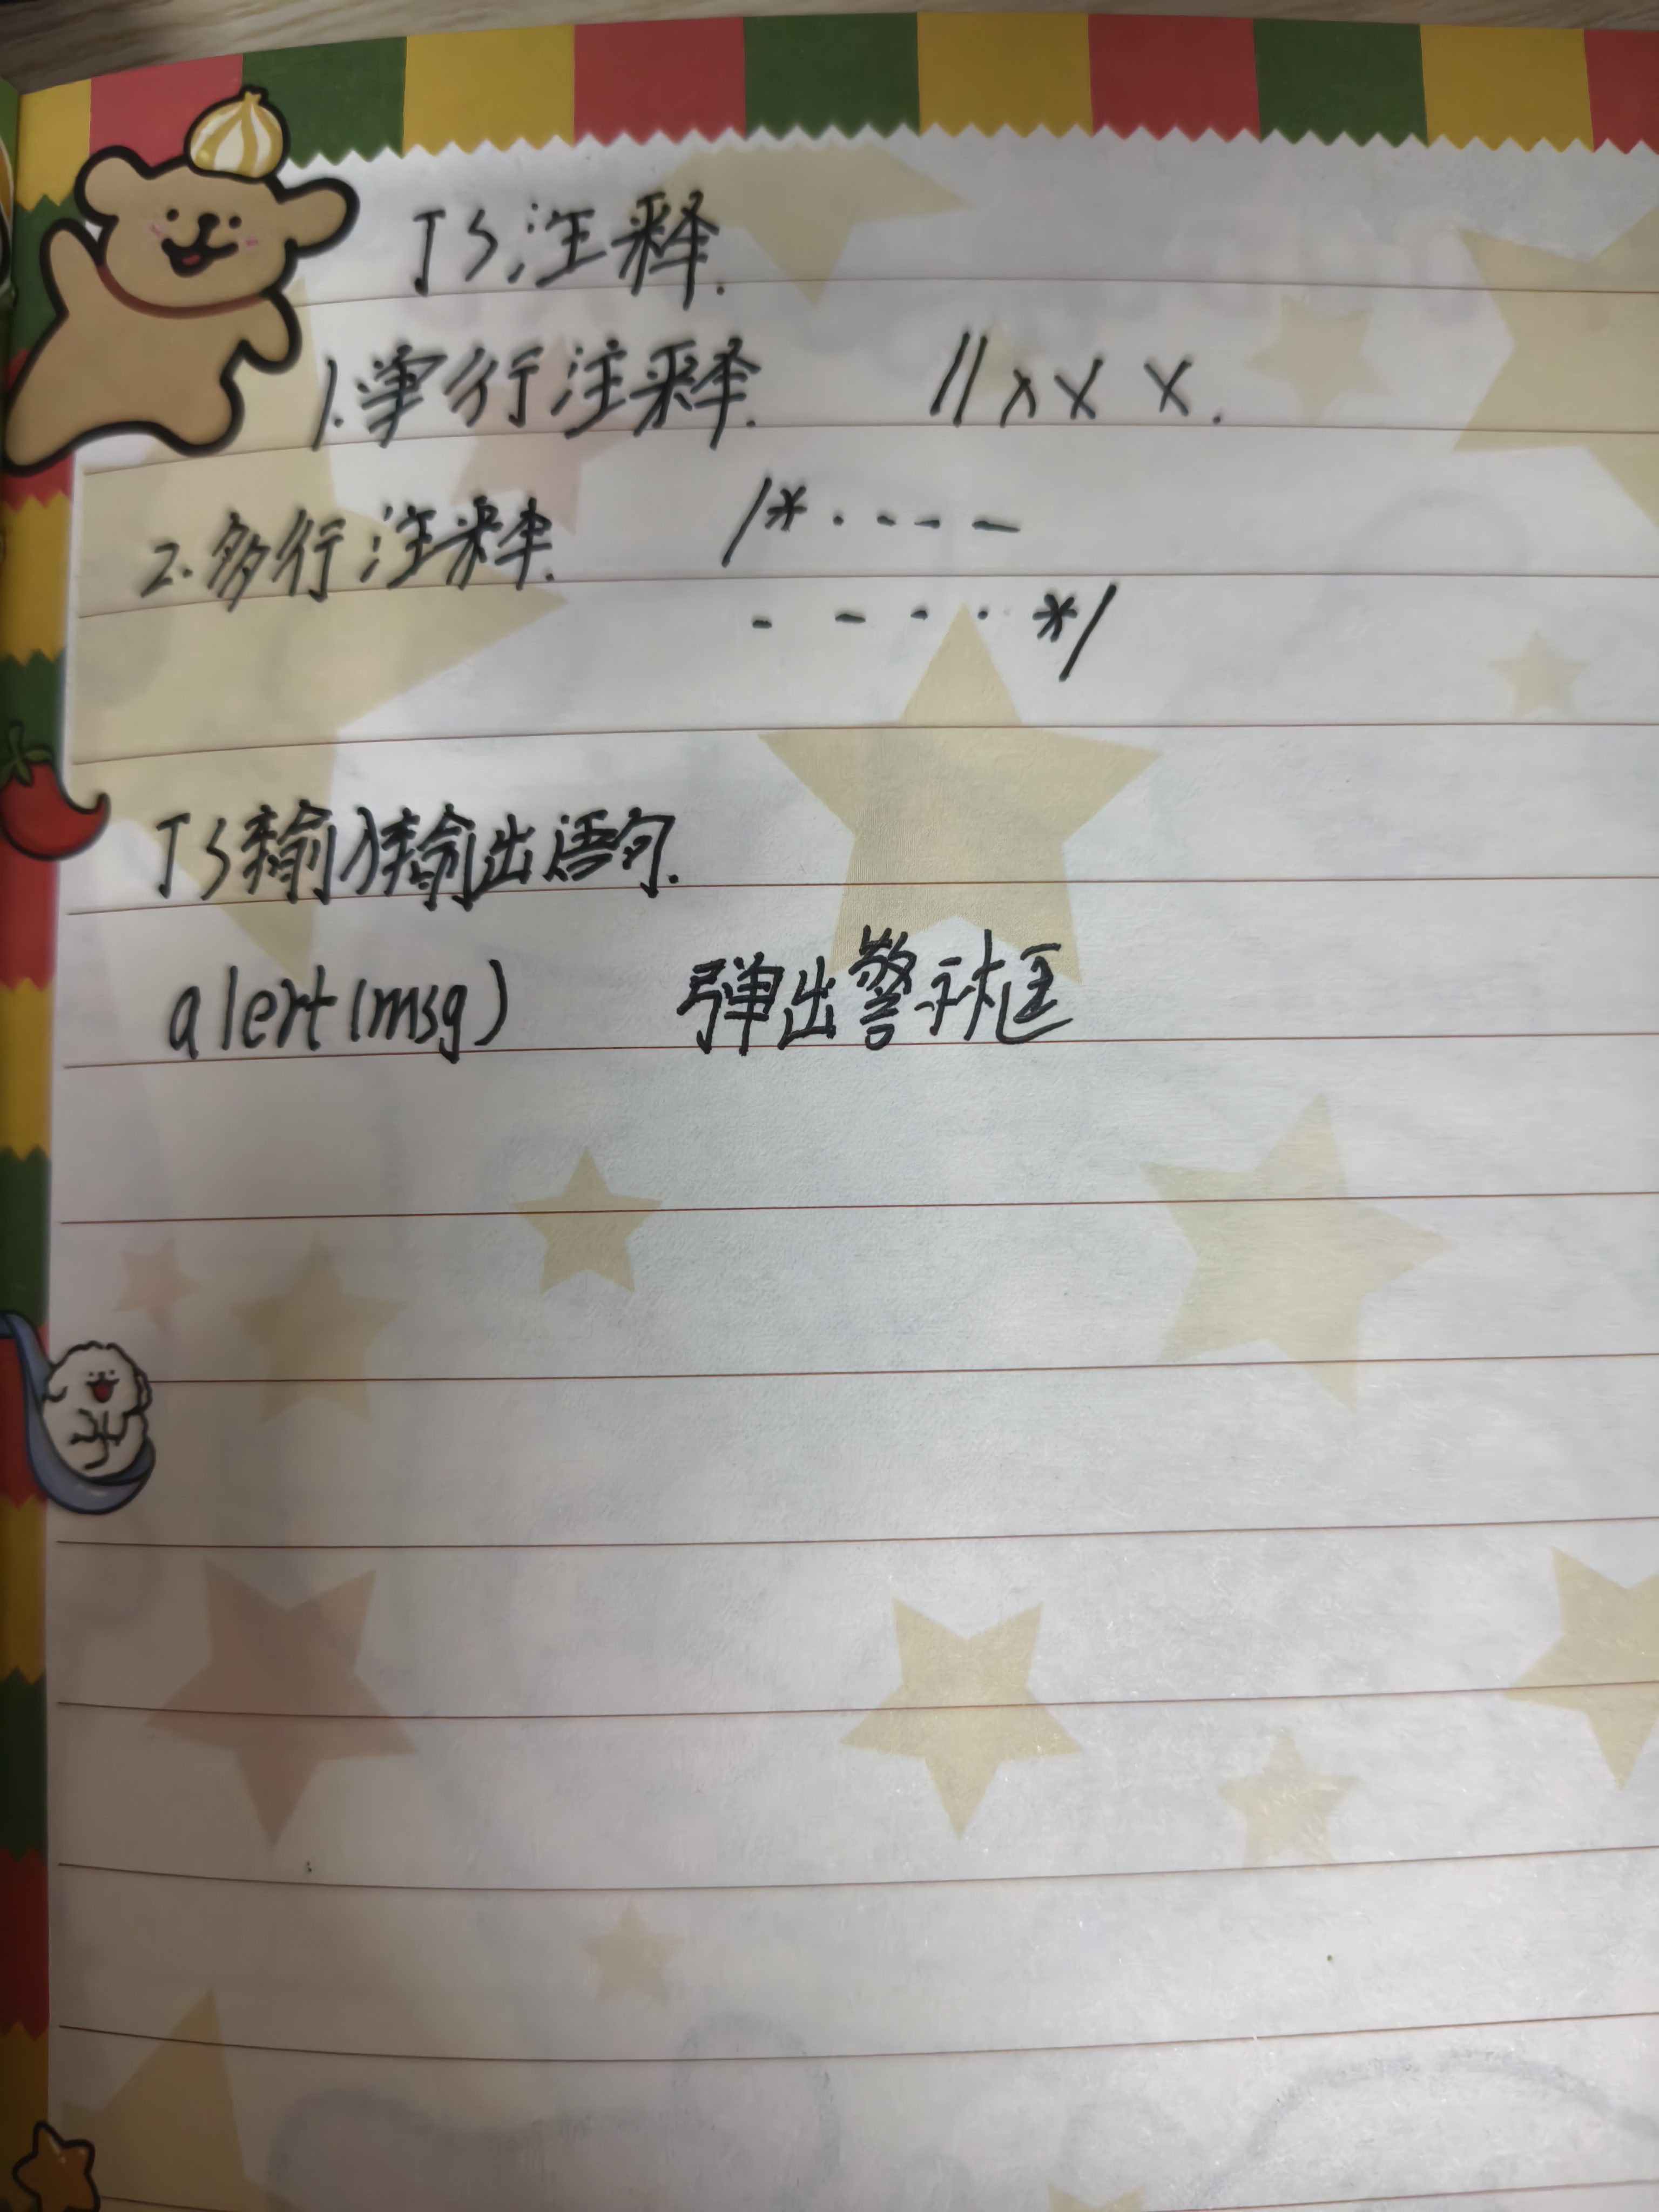 JS注释.
1.单行注释. //xxx.
2.多行注释. /*.---
- - - . */
JS输入输出语句.
alert(msg) 弹出警示框